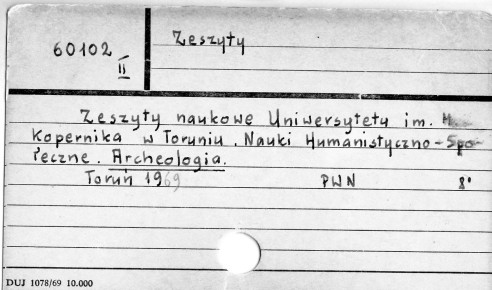 60102
II
Zeszyty
Zeszyty naukowe Uniwersytetu im. M.
Kopernika w Toruniu. Nauki Humanistyczno-Spo-
łeczne. Archeologia.
Toruń 1969 PWN 8°
DUJ 1078/69 10.000